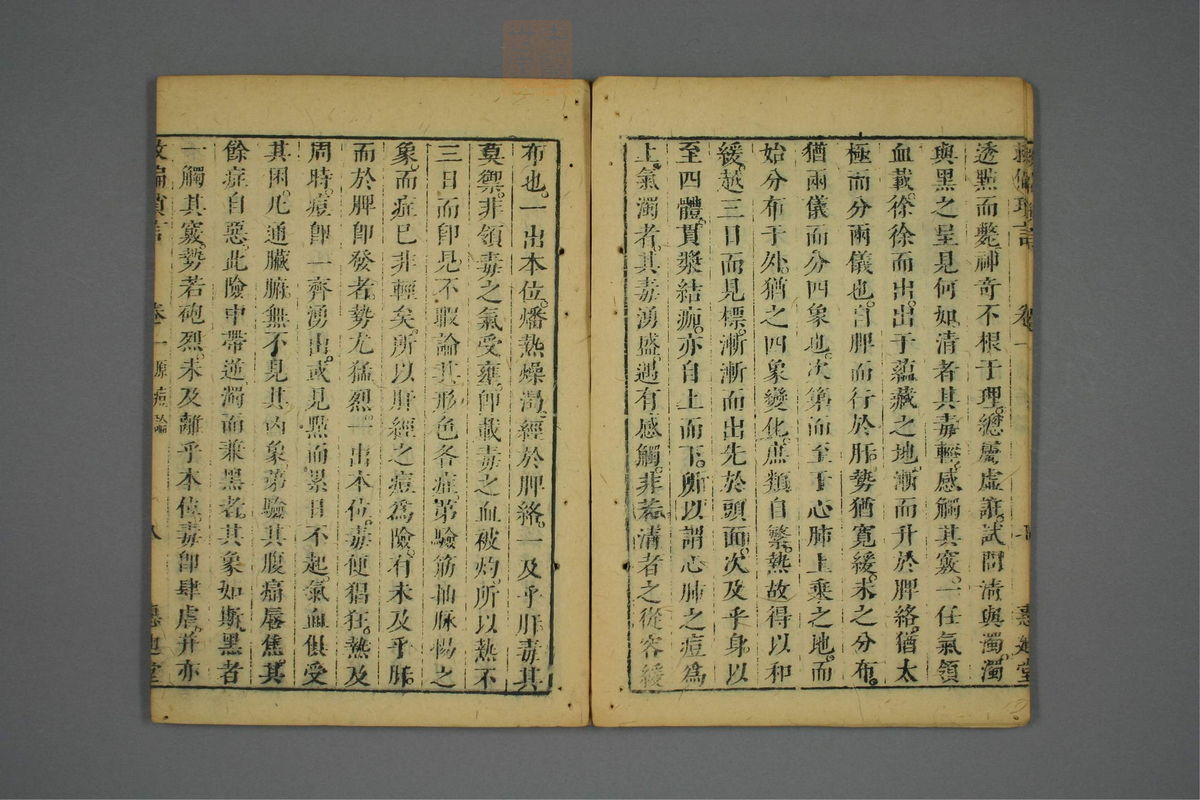 透點而斃神奇不根于理總屬虛誑試問清與濁濁
與黑之呈見何如清者其毒輕感觸其竅一任氣領
血載徐徐而出出于蘊藏之地漸而升於脾絡猶太
極而分兩儀也自脾而行於肝勢猶寬緩未之分布
猶兩儀而分四象也次第而至于心肺上乘之地而
始分布于外猶之四象變化庶類自繁熱故得以和
緩越三日而見標漸漸而出先於頭面次及乎身以
至四體貫漿結痂亦自上而下所以謂心肺之痘為
上氣濁者其毒湧盛遇有感觸非若清者之從容緩
布也一出本位燔熱燥渴經於脾絡一及乎肝毒其
莫禦非領毒之氣受壅即載毒之血被灼所以熱不
三日而即見不暇論其形色各症第驗筋抽脈惕之
象而症已非輕矣所以肝經之痘為險有未及乎肝
而於脾即發者勢尤猛烈一出本位毒便猖狂熱及
周時痘即一齊湧出或見點而累日不起氣血俱受
其困凡通臟腑無不見其內象第驗其腹痛唇焦其
餘症自惡此險中帶逆濁而兼黑者其象如斯黑者
一觸其竅勢若砲烈未及離乎本位毒即肆虐并亦
卷一 原痘 八 惠迪堂